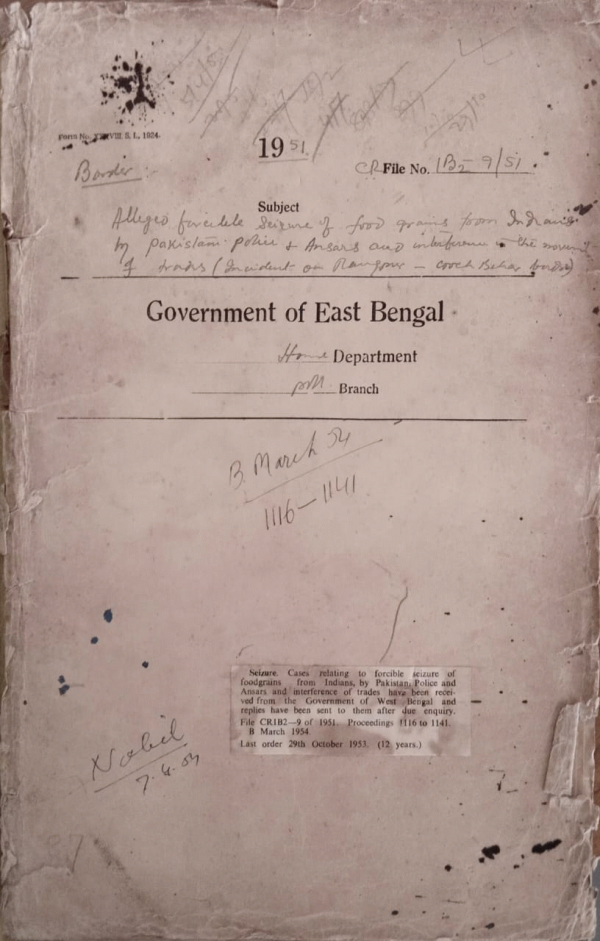 Form No. XXVIII. S. I., 1924.
Border
1951.
CR File No. 1B2-9/51
Subject
Alleged forcible seizure of food grains from Indians
by Pakistani Police & Ansars and interference in the movement
of trades (Incident on Rangpur - Cooch Behar border)
Government of East Bengal
Home Department
Branch
B. March 54
1116-1141
Seizure. Cases relating to forcible seizure of
foodgrains from Indians, by Pakistan, Police and
Ansars and interference of trades have been recei-
ved from the Government of West Bengal and
replies have been sent to them after due enquiry.
File CR1B2—9 of 1951. Proceedings 1116 to 1141.
B March 1954.
Last order 29th October 1953. (12 years.)